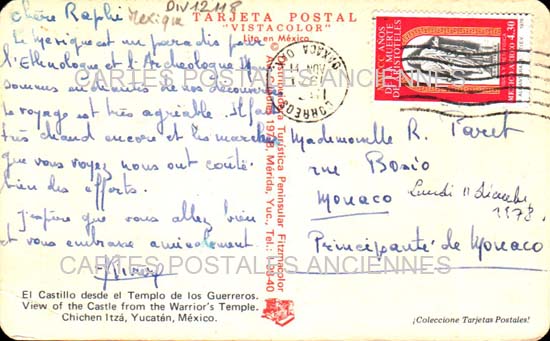 Chère Raphi
Mexique
DIV12118
TARJETA POSTAL
"VISTACOLOR"
Lito en México
Le Mexique est un paradis pour
l'Ethnologue et l'Archeologue. Nous
sommes enchantés de nos découvertes
le voyage est très agréable. Il fait
très chaud encore et les marches
que vous voyez nous ont coûté
bien des efforts.
J'espère que vous allez bien
et vous embrasse amicalement.
El Castillo desde el Templo de los Guerreros.
View of the Castle from the Warrior's Temple.
Chichen Itzá, Yucatán, México.
Distribuidora Turística Peninsular Fitzmacolor
Mérida, Yuc., Tel.:
MM CC ANOS
DE LA MUERTE
DE ARISTOTELES
MEXICO CORREO AEREO 4.30
CORREOS
OAXACA
Mademoiselle R. Paret
rue Bosio
Monaco
Lundi 11 Décembre
1978
Principauté de Monaco
¡Coleccione Tarjetas Postales!
CARTES POSTALES ANCIENNES
CARTES POSTALES ANCIENNES